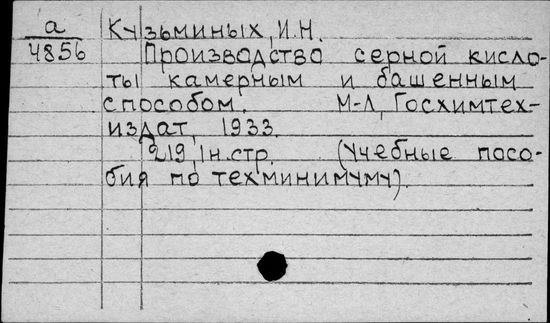 а Кузьминых, И.Н.
4856 Производство серной кисло-
ты камерным и башенным
способом. М-Л, Госхимтех-
издат, 1933.
219, 1н.стр. (Учебные посо-
бия по техминимуму).